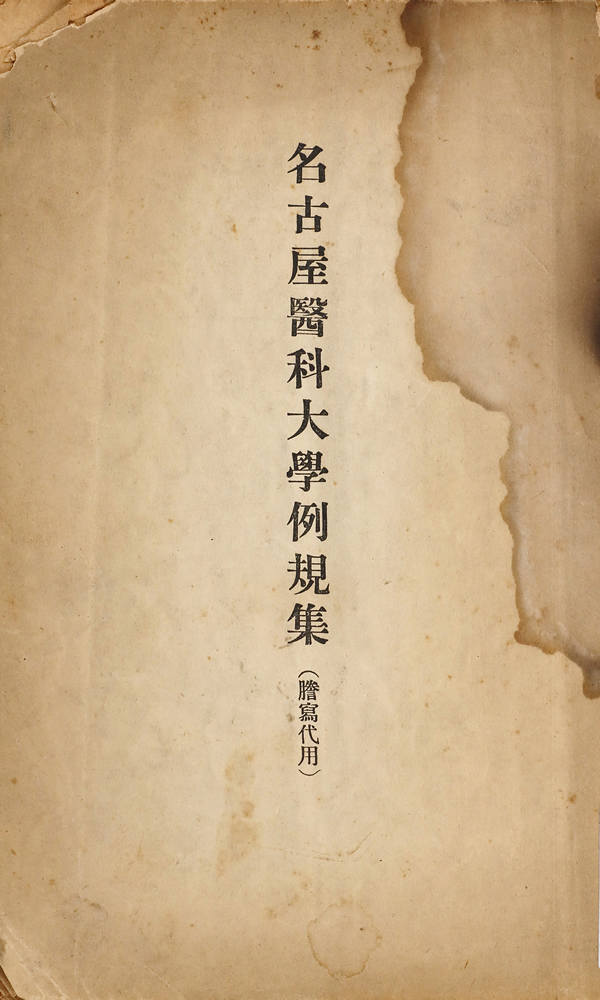 名古屋醫科大學例規集（謄寫代用）